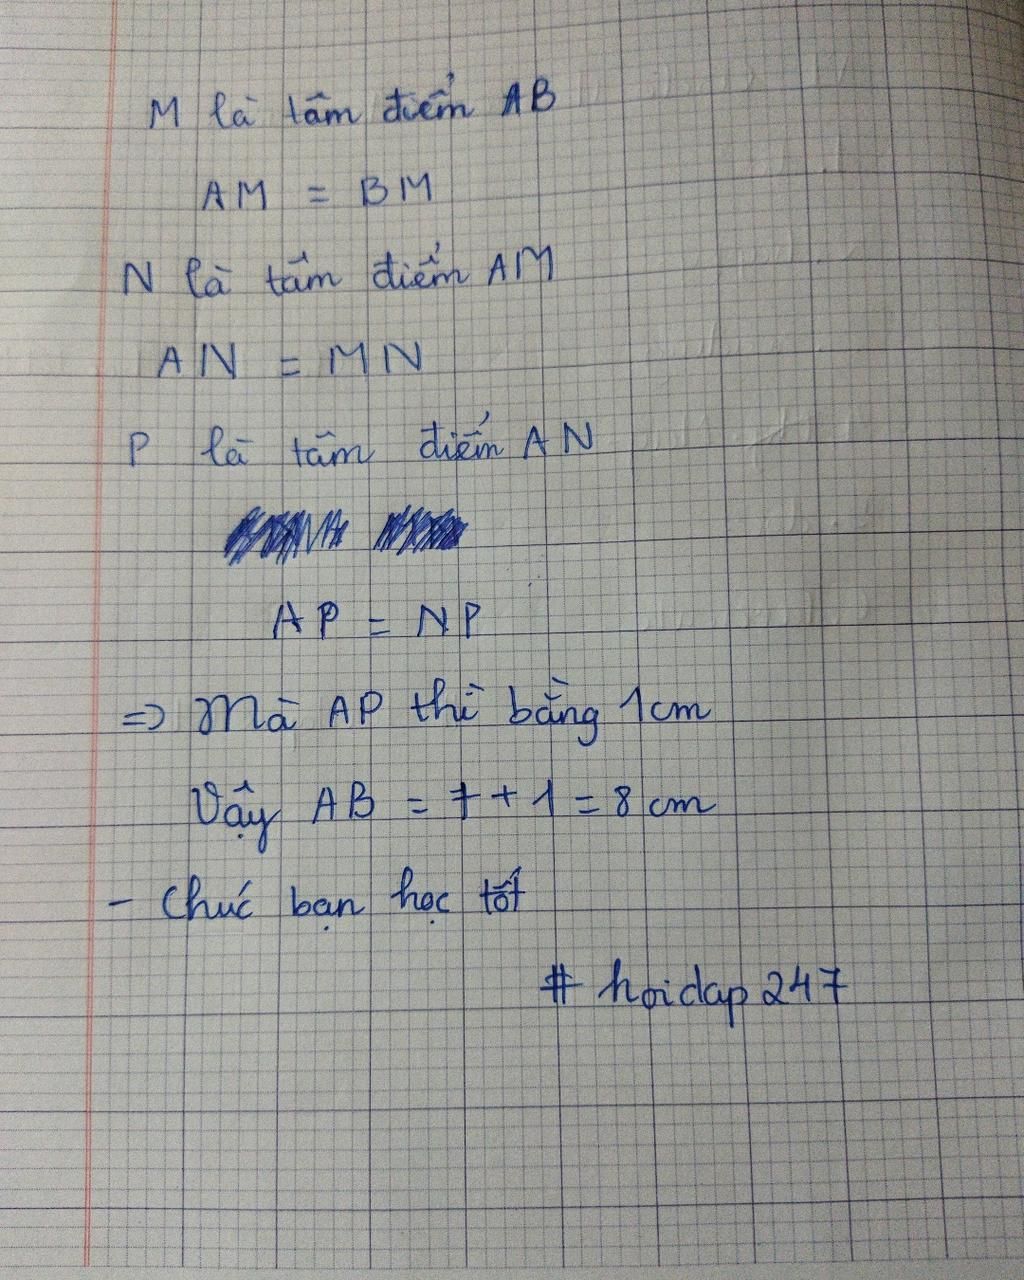 M là tâm điểm AB
AM = BM
N là tâm điểm AM
AN = MN
P là tâm điểm AN
AP = NP
=> Mà AP thì bằng 1cm
Vậy AB = 7 + 1 = 8 cm
- Chúc bạn học tốt
# hoidap 247